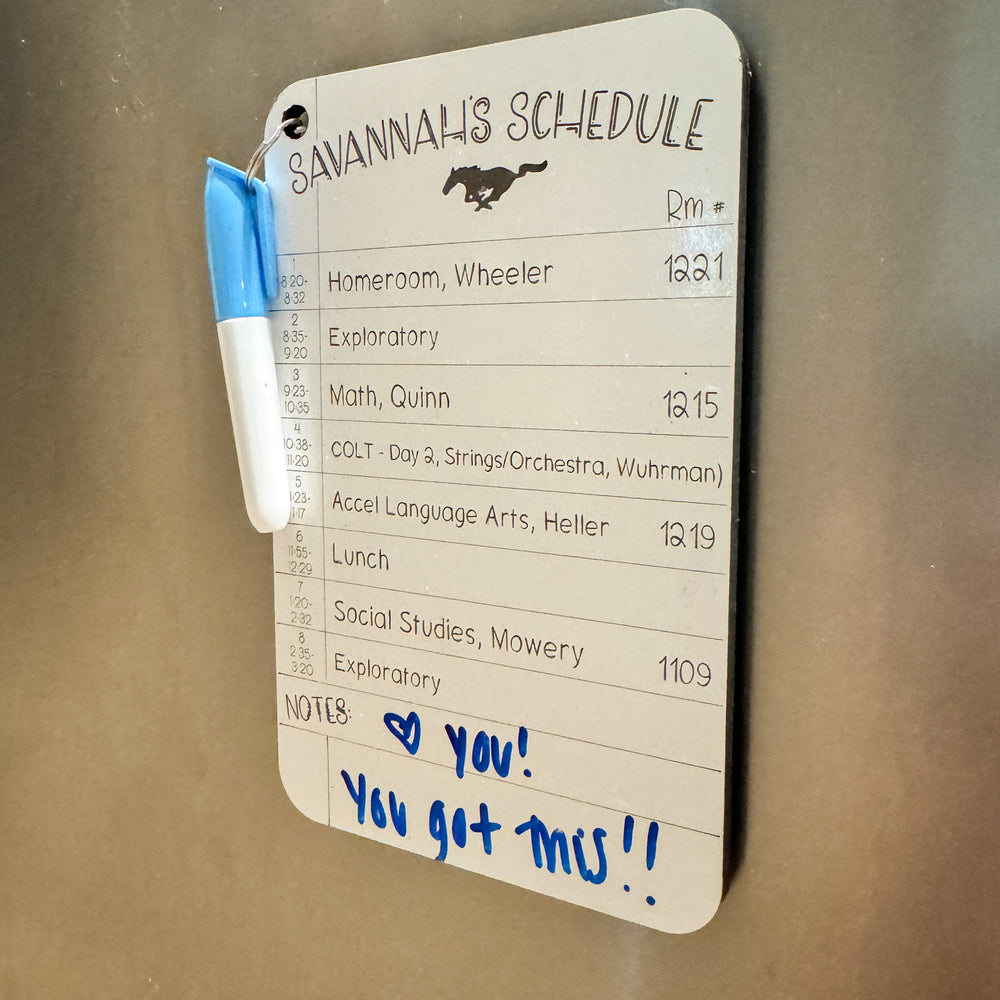 SAVANNAH'S SCHEDULE
Rm #
1
8:20-
8:32
Homeroom, Wheeler 1221
2
8:35-
9:20
Exploratory
3
9:23-
10:35
Math, Quinn 1215
4
10:38-
11:20
COLT - Day 2, Strings/Orchestra, Wuhrman)
5
Accel Language Arts, Heller 1219
6
11:55-
12:29
Lunch
7
1:20-
2:32
Social Studies, Mowery 1109
8
2:35-
3:20
Exploratory
NOTES: ♡ YOU!
You got this!!